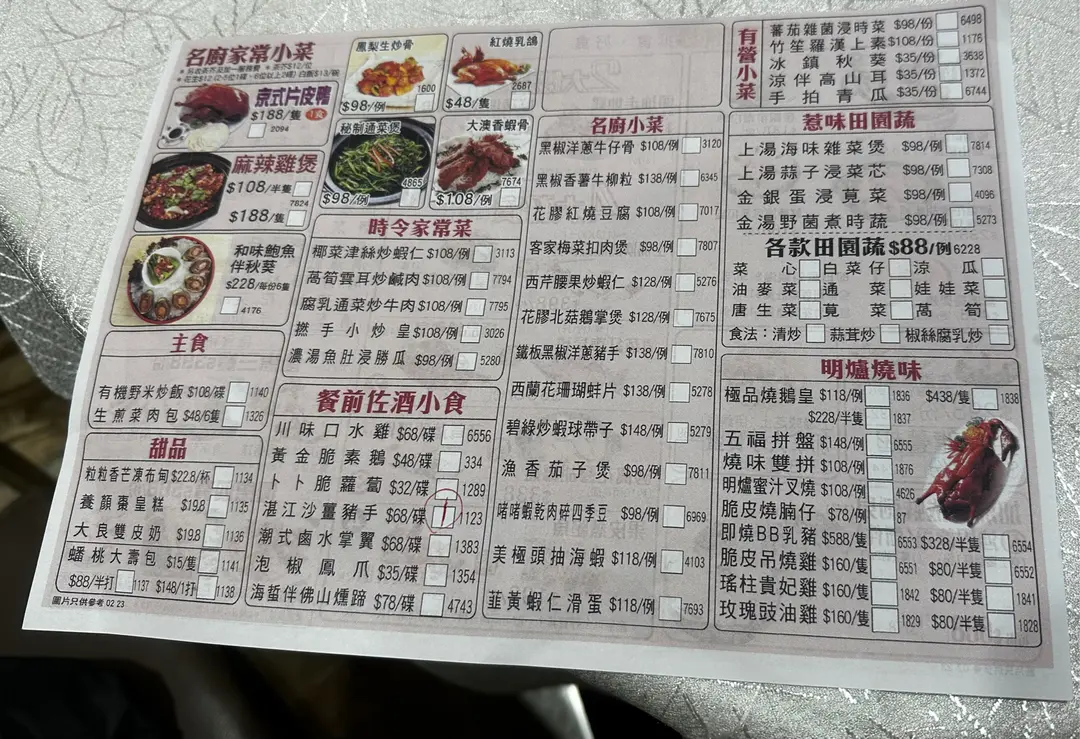 名廚家常小菜
京式片皮鴨
$188/隻
2094
麻辣雞煲
$108/半隻
7824
$188/隻
和味鮑魚
伴秋葵
$228/每份6隻
4176
主食
有機野米炒飯 $108/碟 1140
生煎菜肉包 $48/6隻 1326
甜品
粒粒香芒凍布甸 $22.8/杯 1134
養顏棗皇糕 $19.8 1135
大良雙皮奶 $19.8 1136
蟠桃大壽包 $15/隻 1141
$88/半打 1137 $148/1打 1138
圖片只供參考 02 23
鳳梨生炒骨
$98/例 1600
紅燒乳鴿
$48/隻 2687
秘制通菜煲
$98/例 4865
大澳香蝦骨
$108/例 7674
時令家常菜
椰菜津絲炒蝦仁 $108/例 3113
萵筍雲耳炒鹹肉 $108/例 7794
腐乳通菜炒牛肉 $108/例 7795
撚手小炒皇 $108/例 3026
濃湯魚肚浸勝瓜 $98/例 5280
餐前佐酒小食
川味口水雞 $68/碟 6556
黃金脆素鵝 $48/碟 334
卜卜脆蘿蔔 $32/碟 1289
湛江沙薑豬手 $68/碟 1123
潮式鹵水掌翼 $68/碟 1383
泡椒鳳爪 $35/碟 1354
海蜇伴佛山燻蹄 $78/碟 4743
名廚小菜
黑椒洋蔥牛仔骨 $108/例 3120
黑椒香薯牛柳粒 $138/例 6345
花膠紅燒豆腐 $108/例 7017
客家梅菜扣肉煲 $98/例 7807
西芹腰果炒蝦仁 $128/例 5276
花膠北菇鵝掌煲 $128/例 7675
鐵板黑椒洋蔥豬手 $138/例 7810
西蘭花珊瑚蚌片 $138/例 5278
碧綠炒蝦球帶子 $148/例 5279
漁香茄子煲 $98/例 7811
啫啫蝦乾肉碎四季豆 $98/例 6969
美極頭抽海蝦 $118/例 4103
韮黃蝦仁滑蛋 $118/例 7693
有營小菜
蕃茄雜菌浸時菜 $98/份 6498
竹笙羅漢上素 $108/份 1176
冰鎮秋葵 $35/份 3638
涼伴高山耳 $35/份 1372
手拍青瓜 $35/份 6744
惹味田園蔬
上湯海味雜菜煲 $98/例 7814
上湯蒜子浸菜芯 $98/例 7308
金銀蛋浸莧菜 $98/例 4096
金湯野菌煮時蔬 $98/例 5273
各款田園蔬 $88/例 6228
菜心 白菜仔 涼瓜
油麥菜 通菜 娃娃菜
唐生菜 莧菜 萵筍
食法：清炒 蒜茸炒 椒絲腐乳炒
明爐燒味
極品燒鵝皇 $118/例 1836 $438/隻 1838
$228/半隻 1837
五福拼盤 $148/例 6555
燒味雙拼 $108/例 1876
明爐蜜汁叉燒 $108/例 4626
脆皮燒腩仔 $78/例 87
即燒BB乳豬 $588/隻 6553 $328/半隻 6554
脆皮吊燒雞 $160/隻 6551 $80/半隻 6552
瑤柱貴妃雞 $160/隻 1842 $80/半隻 1841
玫瑰豉油雞 $160/隻 1829 $80/半隻 1828